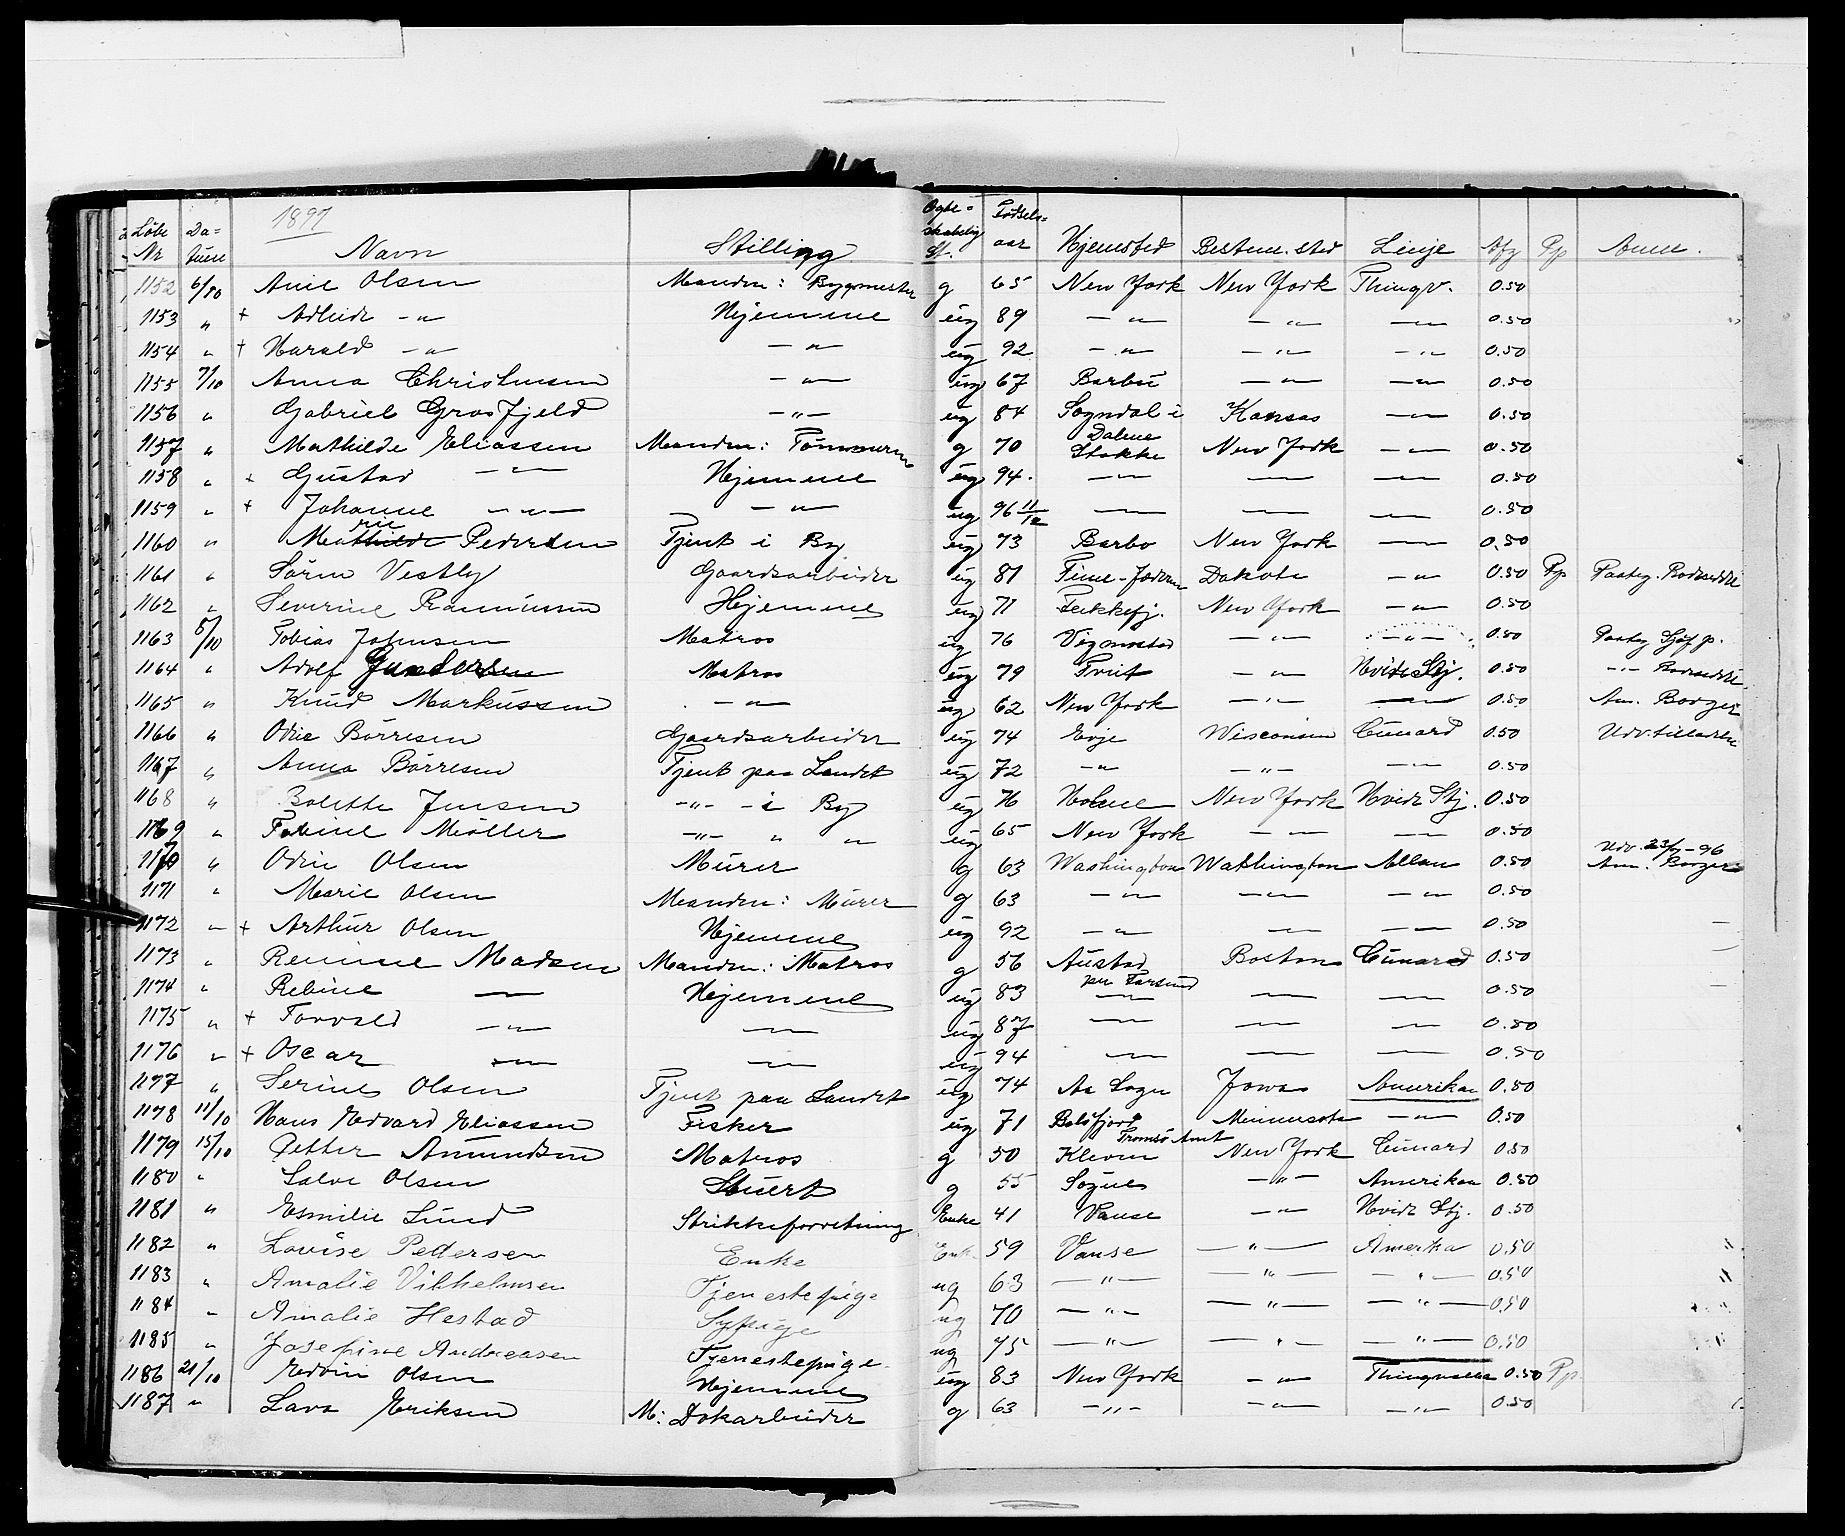 1897
Løbe Nr Da- tum Navn Stilling Ægte- skabelig St. Fødsels- aar Hjemsted Bestem. sted Linje Afg Pp Anm.
1152 6/10 Ane Olsen Manden: Bygmester g 65 New York New York Thingv. 0.50
1153 " + " — " — Hjemme ug 89 — " — — " — — " — 0.50
1154 " + Harald — " — — " — ug 92 — " — — " — — " — 0.50
1155 7/10 Anna Christensen — " — ug 67 Barbu — " — — " — 0.50
1156 " Gabriel Grosfjeld — " — ug 84 Sogndal i Dalene Kansas — " — 0.50
1157 " Mathilde Eliassen Manden: g 70 Stokke New York — " — 0.50
1158 " + Gustav — " — Hjemme ug 94 — " — — " — — " — 0.50
1159 " + Johanne — " — — " — ug 96 11/12 — " — — " — — " — 0.50
1160 " Marie Pedersen Tjent i By ug 73 Barbo New York — " — 0.50
1161 " Søren Vestly Gaardsarbeider ug 81 Time-Jæderen Dakota — " — 0.50 Pp Paateg.
1162 " Severine Rasmussen Hjemme ug 71 Flekkefj. New York — " — 0.50
1163 8/10 Tobias Johnsen Matros ug 76 Vigmostad — " — — " — 0.50 Paateg
1164 " Adolf Gundersen Matros ug 79 — " — Hvide Stj. 0.50 — " —
1165 " Knud Markussen — " — ug 62 New York — " — — " — 0.50 Am. Borger
1166 " Odie Børresen Gaardsarbeider ug 74 Evje Wisconsin Cunard 0.50 Udv. tilladelse
1167 " Anna Børresen Tjent paa Landet ug 72 — " — — " — — " — 0.50
1168 " Bolette Jensen — " — i By ug 76 Holme New York Hvide Stj. 0.50
1169 " Møller — " — " " ug 65 New York — " — — " — 0.50
1170 " Odin Olsen Murer g 63 Washington Washington Allan 0.50 Udv. 23/7-96 Am. Borger
1171 " Marie Olsen Manden: Murer g 63 — " — — " — — " — 0.50
1172 " + Arthur Olsen Hjemme ug 92 — " — — " — — " — 0.50
1173 " Reinine Madsen Manden: Matros g 56 Austad pr Farsund Boston Cunard 0.50
1174 " Rebine — " — Hjemme ug 83 — " — — " — — " — 0.50
1175 " + Torvald — " — — " — ug 87 — " — — " — — " — 0.50
1176 " + Oscar — " — — " — ug 94 — " — — " — — " — 0.50
1177 " Serine Olsen Tjent paa Landet ug 74 Aa Sogn Jowa Amerikan 0.50
1178 11/10 Hans Edvard Eliassen Fisker ug 71 Balsfjord Tromsø Amt Minnesota — " — 0.50
1179 15/10 Petter Amundsen Matros g 50 Kleven New York Cunard 0.50
1180 " Salve Olsen Stuert g 55 Søgne — " — Amerikan 0.50
1181 " Emilie Lund Strikkeforretning Enke 41 Vanse — " — Hvide Stj. 0.50
1182 " Lovise Pedersen Enke Enk. 59 Vanse — " — Amerika 0.50 "
1183 " Amalie Vilhelmsen Tjenestepige ug 63 — " — — " — — " — 0.50 "
1184 " Amalie Hestad Sypige ug 70 — " — — " — — " — 0.50
1185 " Josefine Andreasen Tjenestepige ug 75 — " — — " — — " — 0.50
1186 21/10 Edvin Olsen Hjemme ug 83 New York — " — Thingvalla 0.50 Pp.
1187 " Lava Eriksen M: Dokarbeider g 63 — " — — " — — " — 0.50